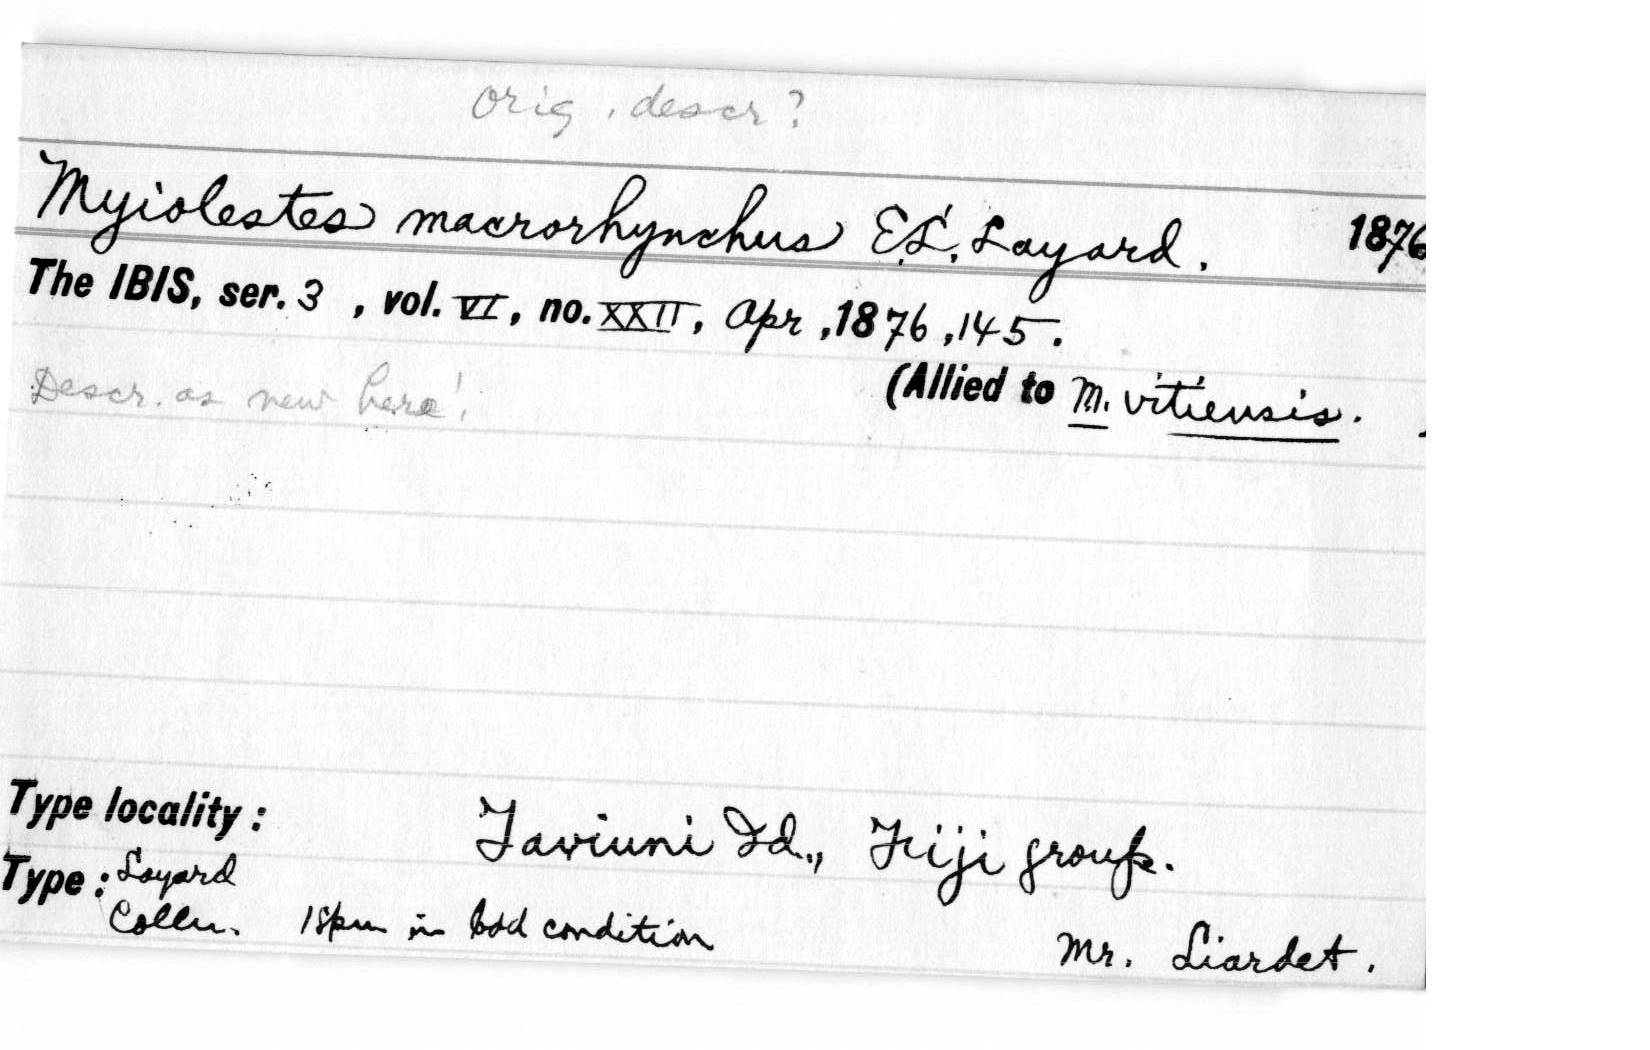 Orig. descr?
Myiolestes macrorhynchus E.L. Layard. 1876
The IBIS, ser. 3, vol. VI, no. XXII, Apr, 1876, 145.
(Allied to M. vitiensis. )
Descr. as new here!
Type locality: Taviuni Id., Fiji group.
Type: Layard
Colln. 1 spm in bad condition Mr. Liardet.